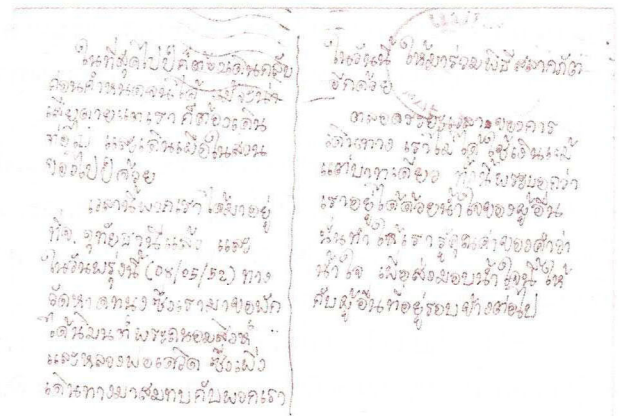 ในที่สุดไปป์ก็ต้อนเดินกลับ
ก่อนกำหนดจนได้ แม้จะน่า
เสียดายแต่เราก็ต้องเดิน
ต่อไป และเดินเผื่อในส่วน
ของไปป์ด้วย
เวลานี้พวกเราได้มาอยู่
ที่จ. อุทัยธานีแล้ว และ
ในวันพรุ่งนี้ (04/05/52) ทาง
วัดหาดทนง ซึ่งเรามาขอพัก
ได้นิมนต์พระถนอมสิงห์
และหลวงพ่อเดวิด ซึ่งเพิ่ง
เดินทางมาสมทบกับพวกเรา
ในวันนี้ ให้มาร่วมพิธี
อีกด้วย
ตลอดระยะเวลาของการ
เดินทาง เราไม่ได้ใช้เงินแม้
แต่บาทเดียว ท่านพระบอกว่า
เราอยู่ได้ด้วยน้ำใจของผู้อื่น
นั่นทำให้เรารู้คุณค่าของคำว่า
น้ำใจ เพื่อส่งมอบน้ำใจนี้ให้
กับผู้อื่นที่อยู่รอบข้างต่อไป